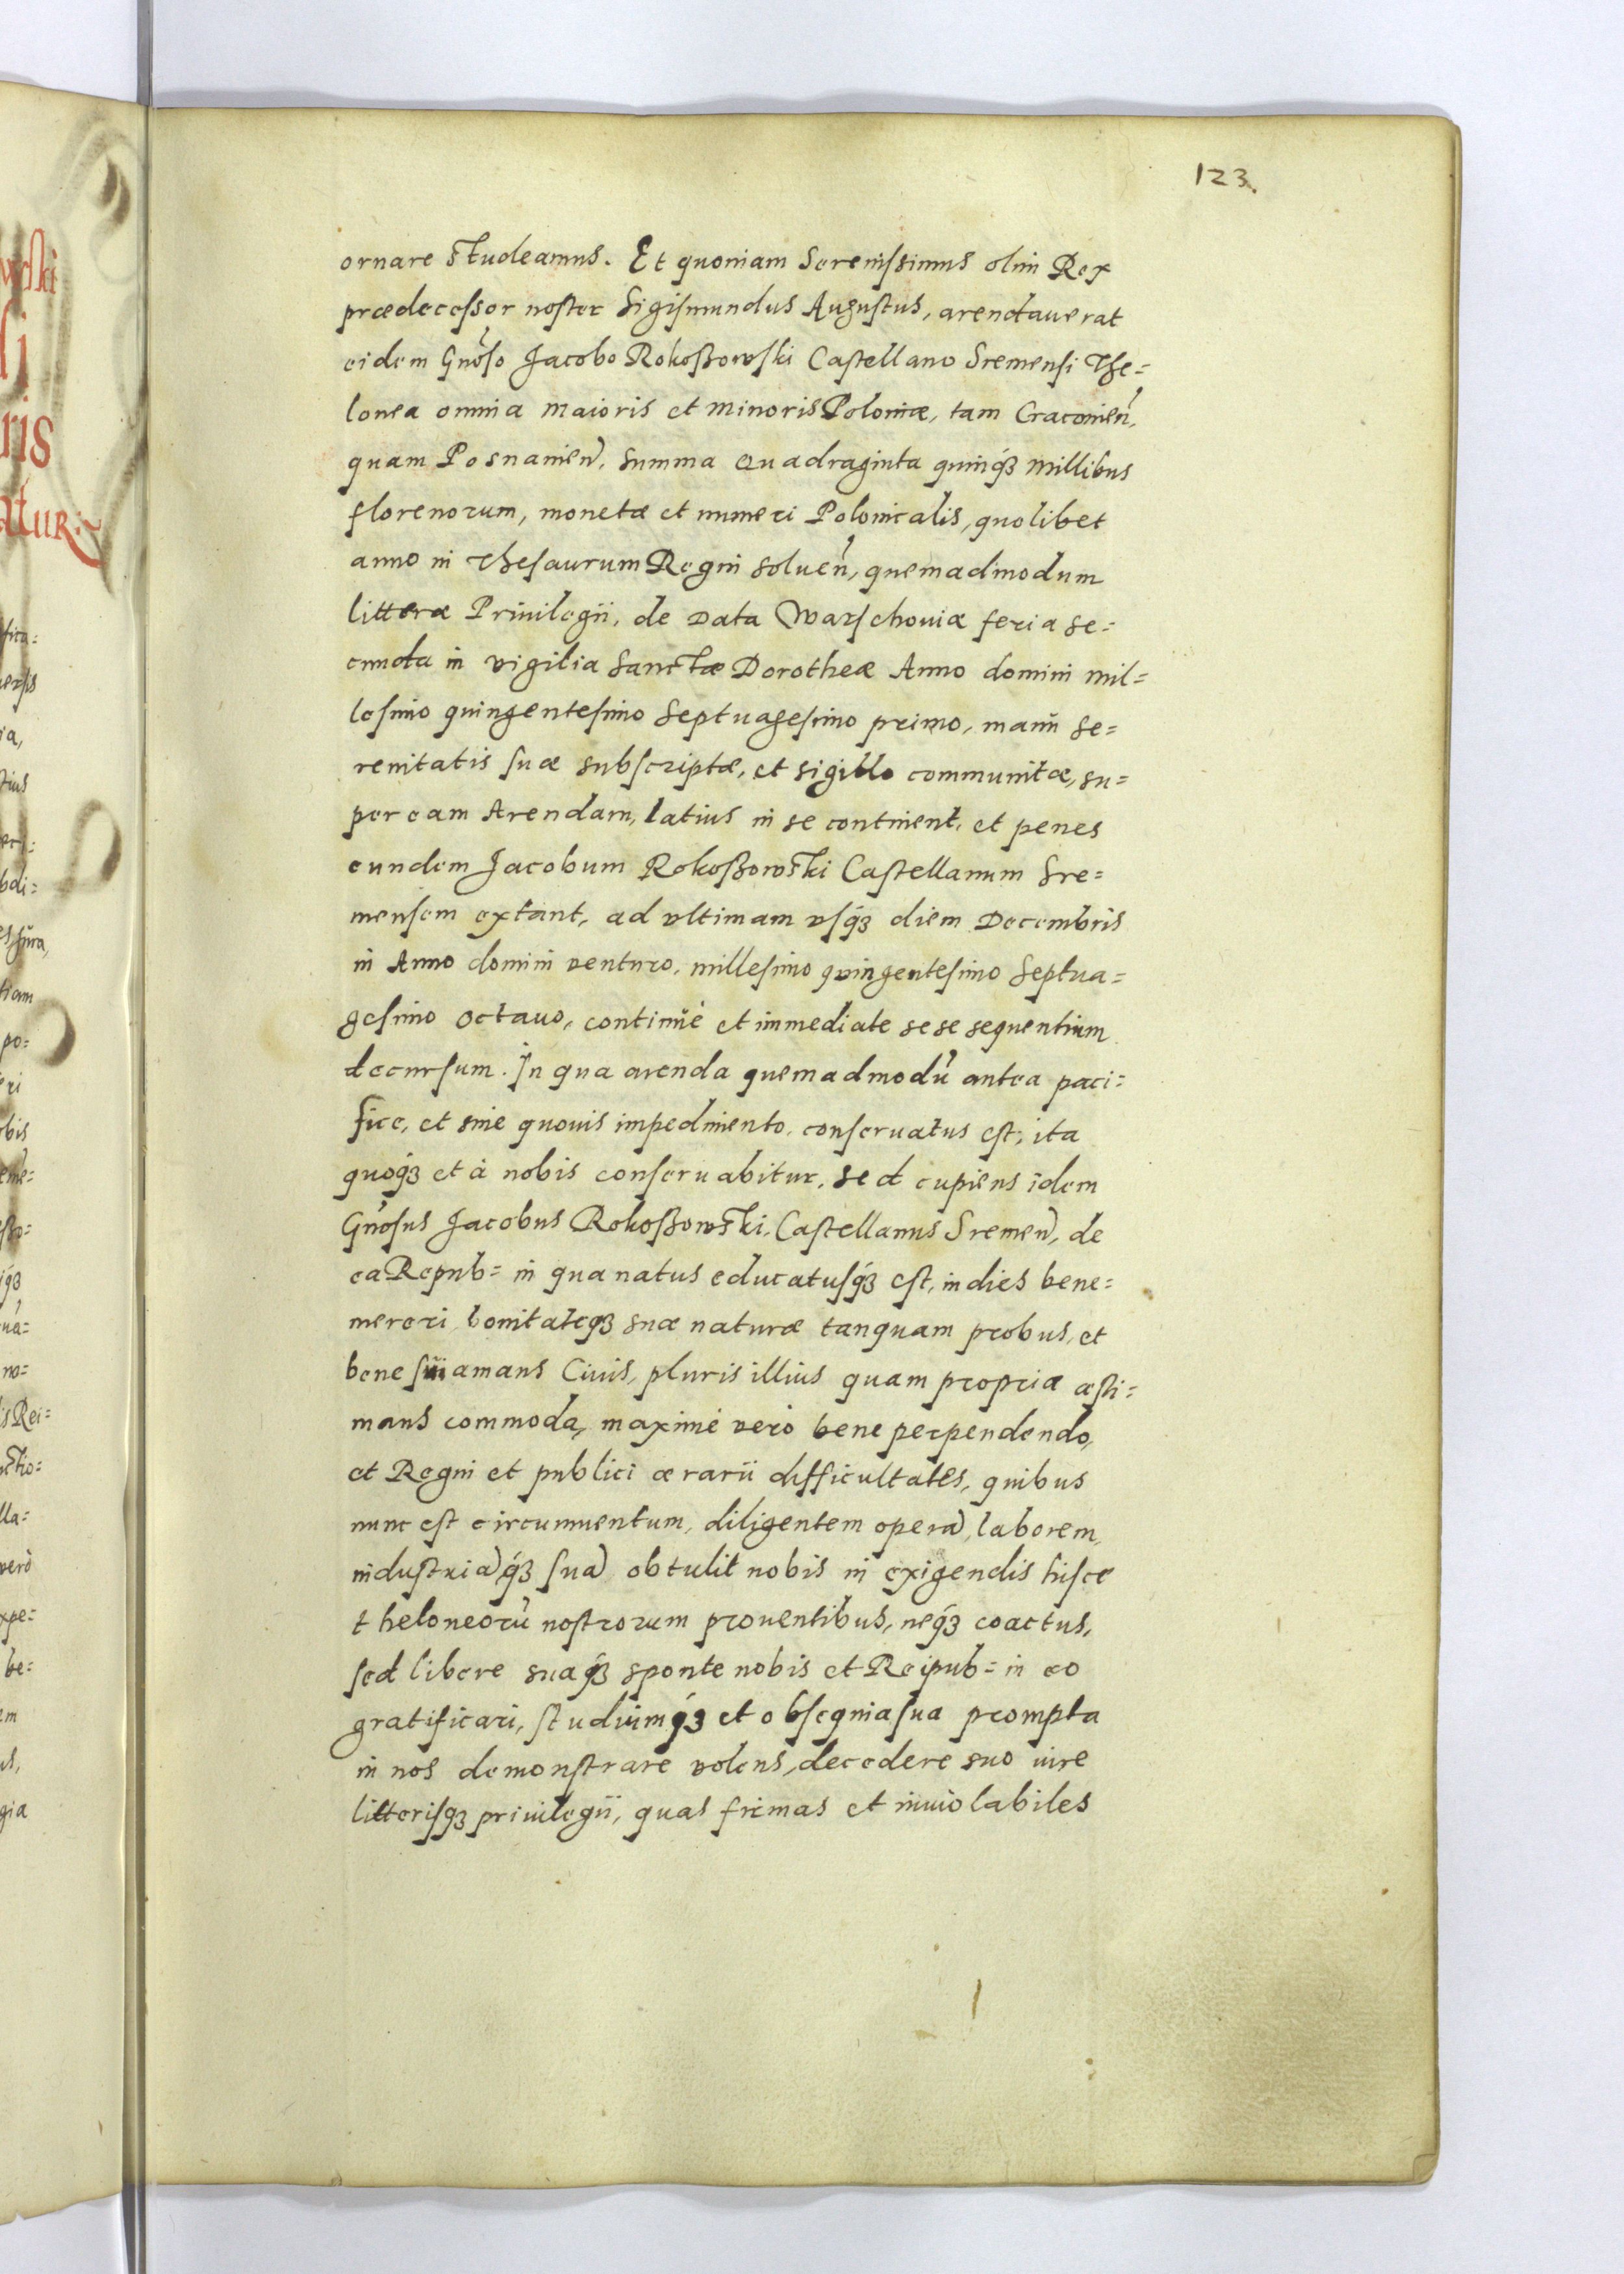 123.
ornare studeamus. Et quoniam Serenissimus olim Rex
prædecessor noster Sigismundus Augustus, arendauerat
eidem Gnoso Jacobo Rokoßowski Castellano Sremensi The=
lonea omnia Maioris et Minoris Poloniæ, tam Cracouien,
quam Posnanien, summa Quadraginta quinq3 Millibus
florenorum, monetæ et numeri Polonicalis, quolibet
anno in Thesaurum Regni soluen, quemadmodum
litteræ Priuilegii, de Data Warschouiæ feria se=
cunda in vigilia Sanctæ Dorotheæ Anno domini Mil=
lesimo quingentesimo Septuagesimo primo, manu Se=
renitatis suæ subscriptæ, et sigillo communitæ, su=
per eam Arendam, latius in se continent, et penes
eundem Jacobum Rokoßowski Castellanum Sre=
mensem extant, ad vltimam vsq3 diem Decembris
in Anno domini venturo, millesimo quingentesimo Septua=
gesimo octauo, continuè et immediate sese sequentium
decursum. In qua arenda quemadmodu antea paci=
fice, et sine quouis impedimento, conseruatus est, ita
quoq3 et à nobis conseruabitur, sed cupiens idem
Gnosus Jacobus Rokoßowski, Castellanus Sremen, de
ea Repub= in qua natus educatusq3 est, in dies bene=
mereri, bonitateq3 suæ naturæ tanquam probus, et
bene sui amans Ciuis, pluris illius quam propria æsti=
mans commoda, maximè verò bene perpendendo,
et Regni et publici ærarii difficultates, quibus
nunc est circumuentum, diligentem opera, laborem,
industria q3 sua obtulit nobis in exigendis hisce
theloneoru nostrorum prouentibus, neq3 coactus,
sed libere suaq3 sponte nobis et Reipub= in eo
gratificari, studiumq3 et obsequia sua prompta
in nos demonstrare volens, decedere suo iure
litterisq3 priuilegii, quas firmas et inuiolabiles